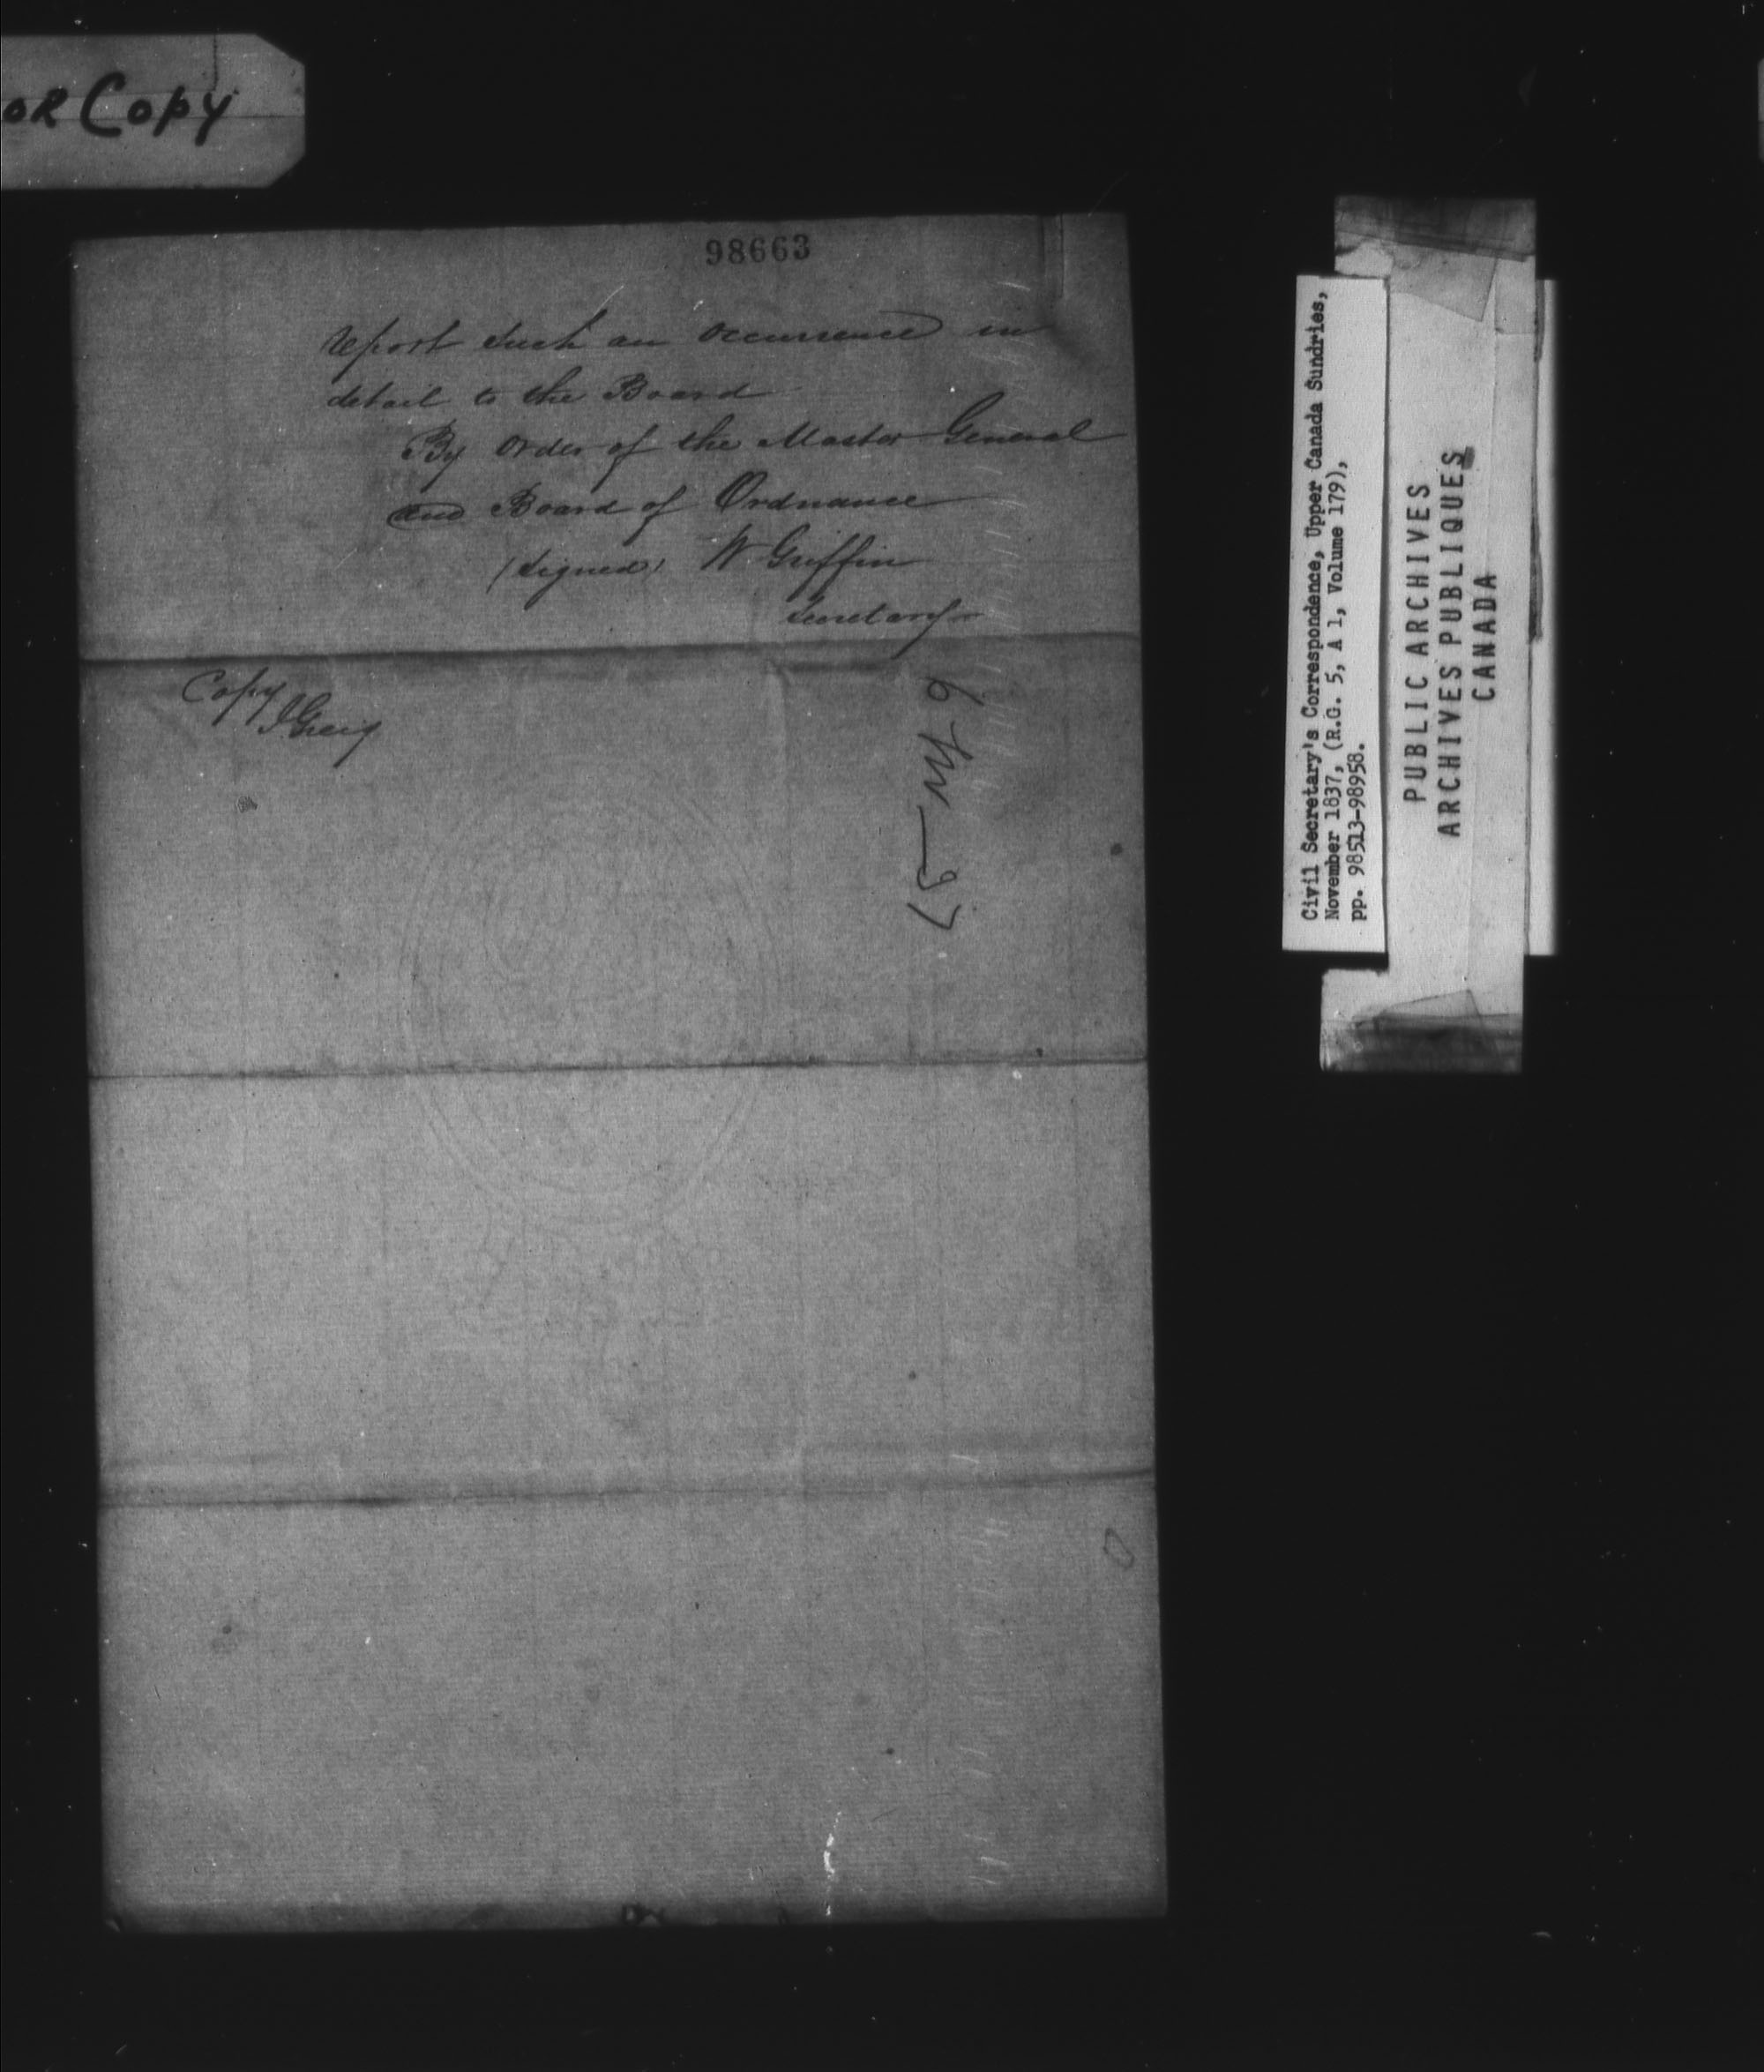 OR Copy
98663
report such an occurrence in
detail to the Board
By order of the Master General
and Board of Ordnance
(signed) W Griffin
Secretary
Copy
J Greig
Civil Secretary's Correspondence, Upper Canada Sundries,
November 1837, (R.G. 5, A 1, Volume 179),
pp. 98513-98958.
PUBLIC ARCHIVES
ARCHIVES PUBLIQUES
CANADA